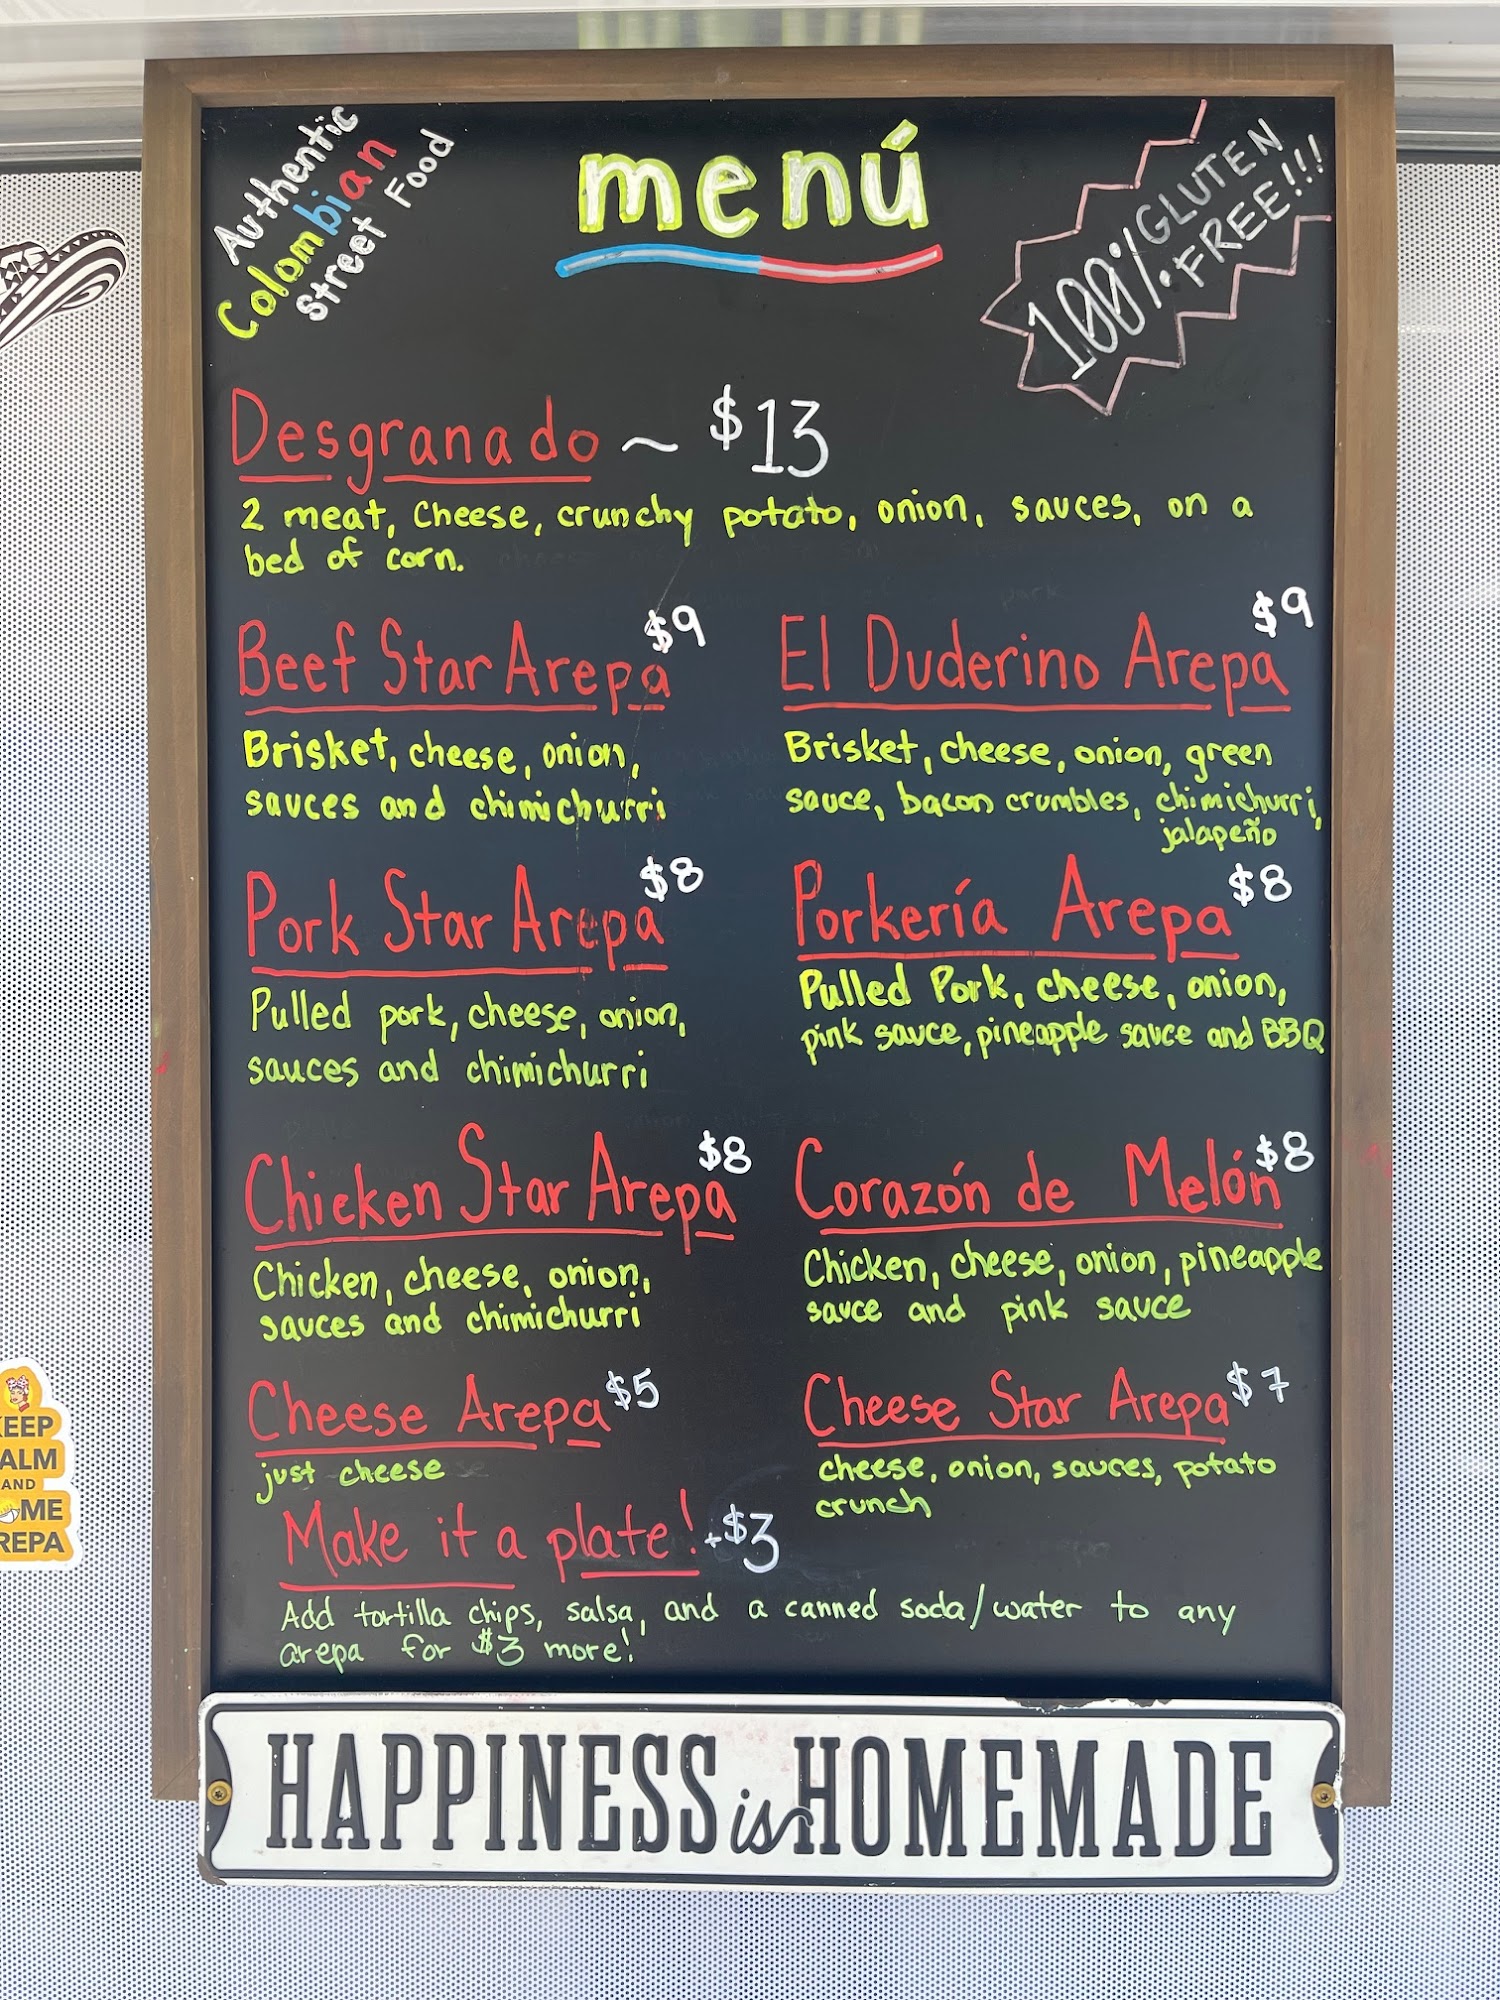 Authentic
Colombian
Street Food
menú
100% GLUTEN
FREE!!!
Desgranado ~ $13
2 meat, Cheese, crunchy potato, onion, sauces, on a
bed of corn.
Beef Star Arepa $9
Brisket, cheese, onion,
sauces and chimichurri
El Duderino Arepa $9
Brisket, cheese, onion, green
sauce, bacon crumbles, chimichurri,
jalapeño
Pork Star Arepa $8
Pulled pork, cheese, onion,
sauces and chimichurri
Porkería Arepa $8
Pulled Pork, cheese, onion,
pink sauce, pineapple sauce and BBQ
Chicken Star Arepa $8
Chicken, cheese, onion,
sauces and chimichurri
Corazón de Melón $8
Chicken, cheese, onion, pineapple
sauce and pink sauce
Cheese Arepa $5
just cheese
Cheese Star Arepa $7
cheese, onion, sauces, potato
crunch
Make it a plate! +$3
Add tortilla chips, salsa, and a canned soda/water to any
arepa for $3 more!
HAPPINESS is HOMEMADE
EEP
ALM
AND
ME
REPA